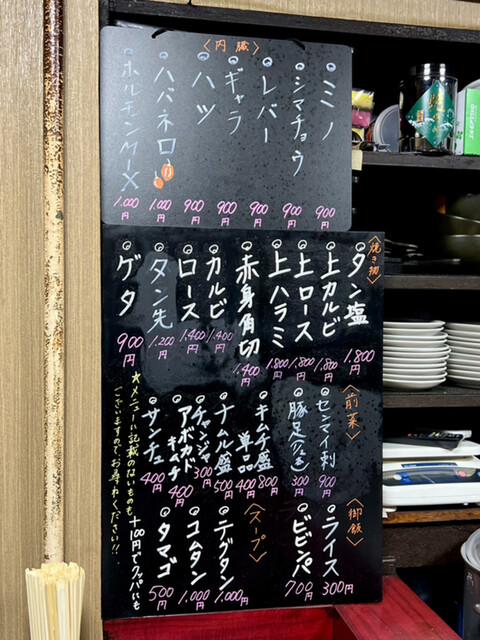 〈内臓〉
ミノ 900円
シマチョウ 900円
レバー 900円
ギャラ 900円
ハツ 900円
ハバネロ 1,000円
ホルモンMIX 1,000円
〈焼き物〉
タン塩 1,800円
上カルビ 1,800円
上ロース 1,800円
上ハラミ 1,800円
赤身角切 1,400円
カルビ 1,400円
ロース 1,400円
タン先 1,200円
ゲタ 900円
〈前菜〉
センマイ刺 900円
豚足(1/4) 300円
キムチ盛 800円
単品 400円
ナムル盛 500円
チャンジャ 300円
アボカドキムチ 400円
サンチュ 400円
〈御飯〉
ライス 300円
ビビンパ 700円
〈スープ〉
テグタン 1,000円
コムタン 1,000円
タマゴ 500円
★メニューに記載のないものも、+100円でクッパにも
ございますので、お尋ねください!!